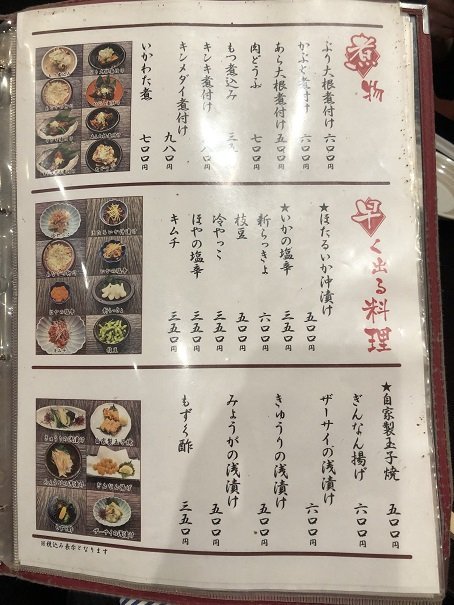 煮物
ぶり大根煮付け 六〇〇円
かぶと煮付け 六〇〇円
あら大根煮付け 五〇〇円
肉どうふ 七〇〇円
もつ煮込み
キンキ煮付け
キンメダイ煮付け 九八〇円
いかわた煮 七〇〇円
早く出る料理
★ほたるいか沖漬け 五〇〇円
★いかの塩辛 三五〇円
新らっきょ 六〇〇円
枝豆 五〇〇円
冷やっこ 三五〇円
ほやの塩辛 三五〇円
キムチ 三五〇円
★自家製玉子焼 五〇〇円
ぎんなん揚げ 六〇〇円
ザーサイの浅漬け 六〇〇円
きゅうりの浅漬け 五〇〇円
みょうがの浅漬け 五〇〇円
もずく酢 三五〇円
いかの塩辛
枝豆
きゅうりの浅漬け
自家製玉子焼
みょうがの浅漬け
ぎんなん揚げ
もずく酢
ザーサイの浅漬け
※税込み表示となります